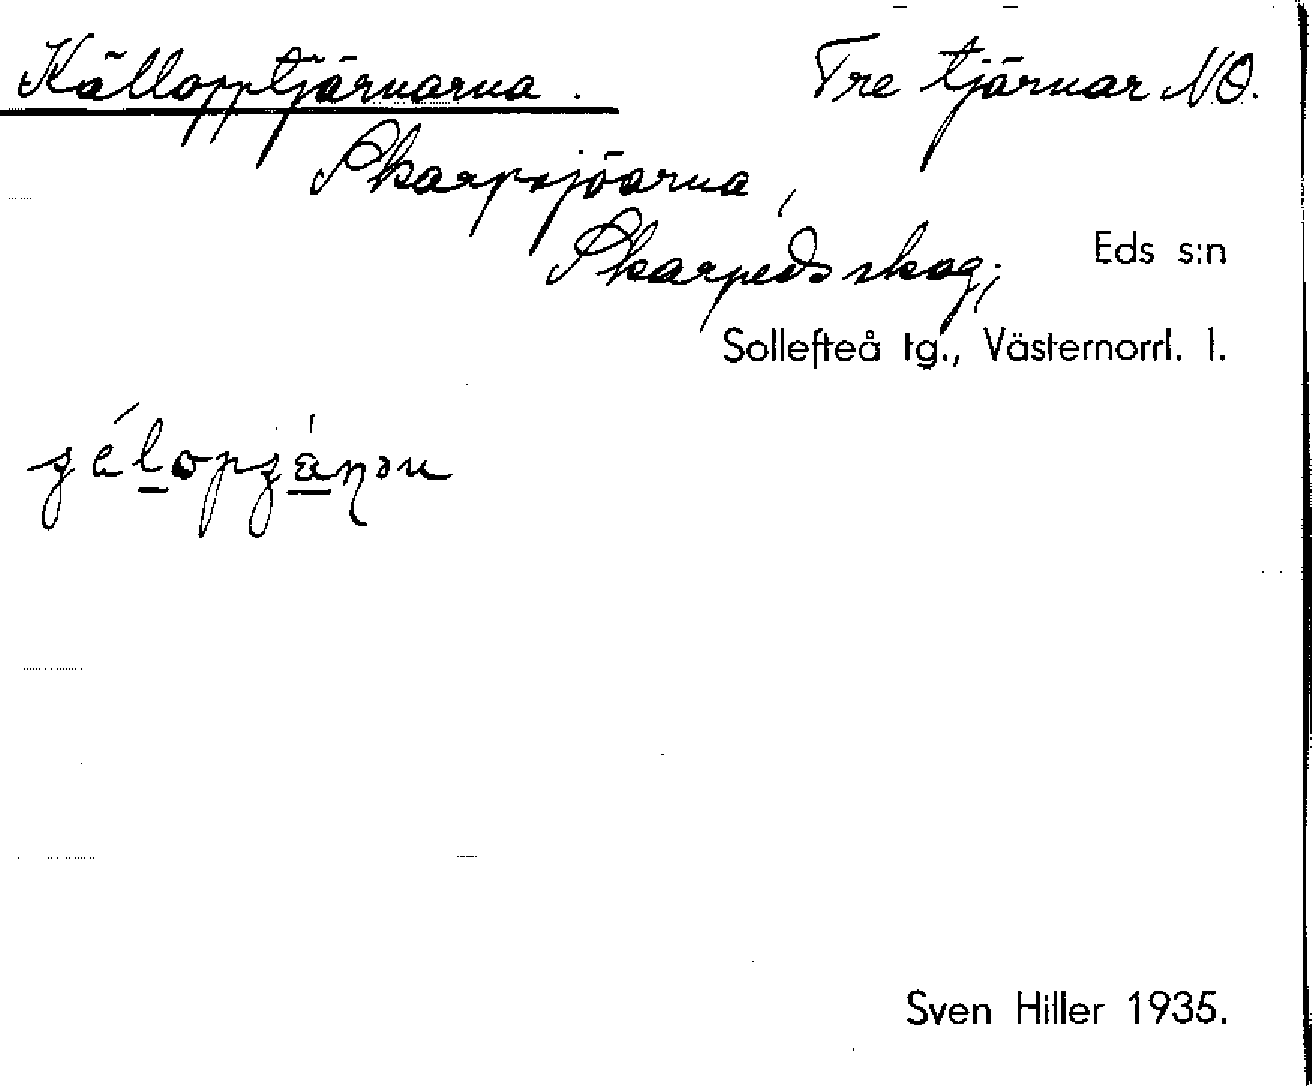 Källopptjärnarna. Tre tjärnar NO.
Skarpsjöarna,
Skarpeds skog;
Eds s:n
Sollefteå tg., Västernorrl. l.
Sven Hiller 1935.